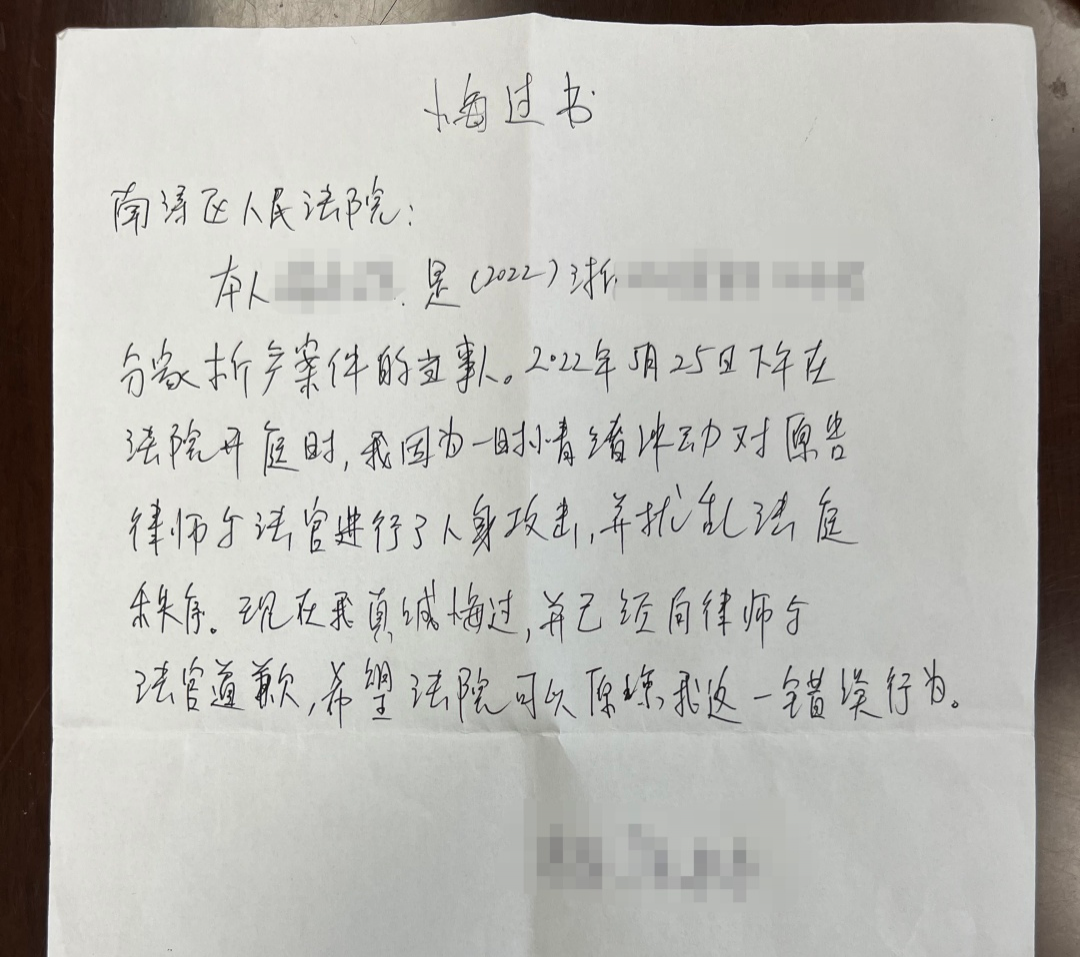 悔过书
南浔区人民法院：
本人 是（2022）浙
分家析产案件的当事人。2022年5月25日下午在
法院开庭时，我因为一时情绪冲动对原告
律师与法官进行了人身攻击，并扰乱法庭
秩序。现在我真诚悔过，并已经向律师与
法官道歉，希望法院可以原谅我这一错误行为。